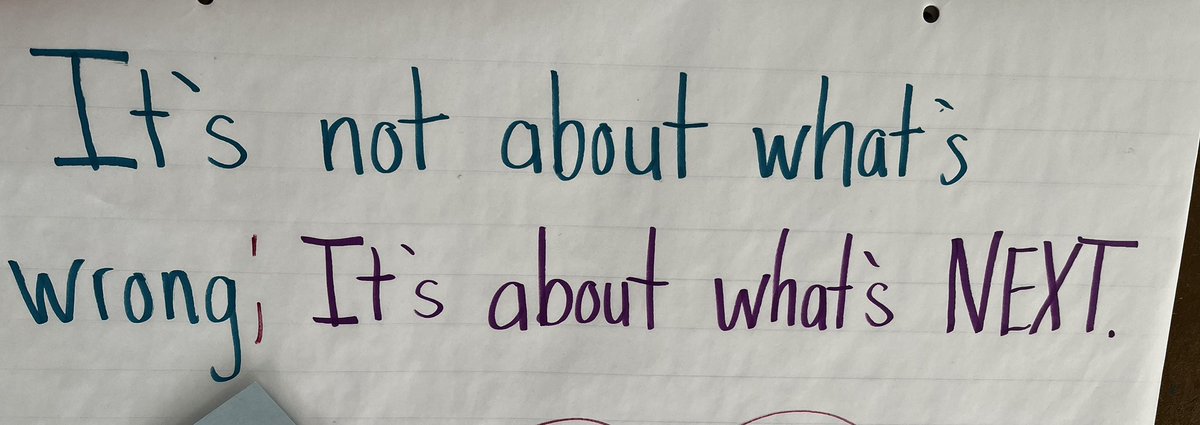 It's not about what's
wrong; It's about what's NEXT.